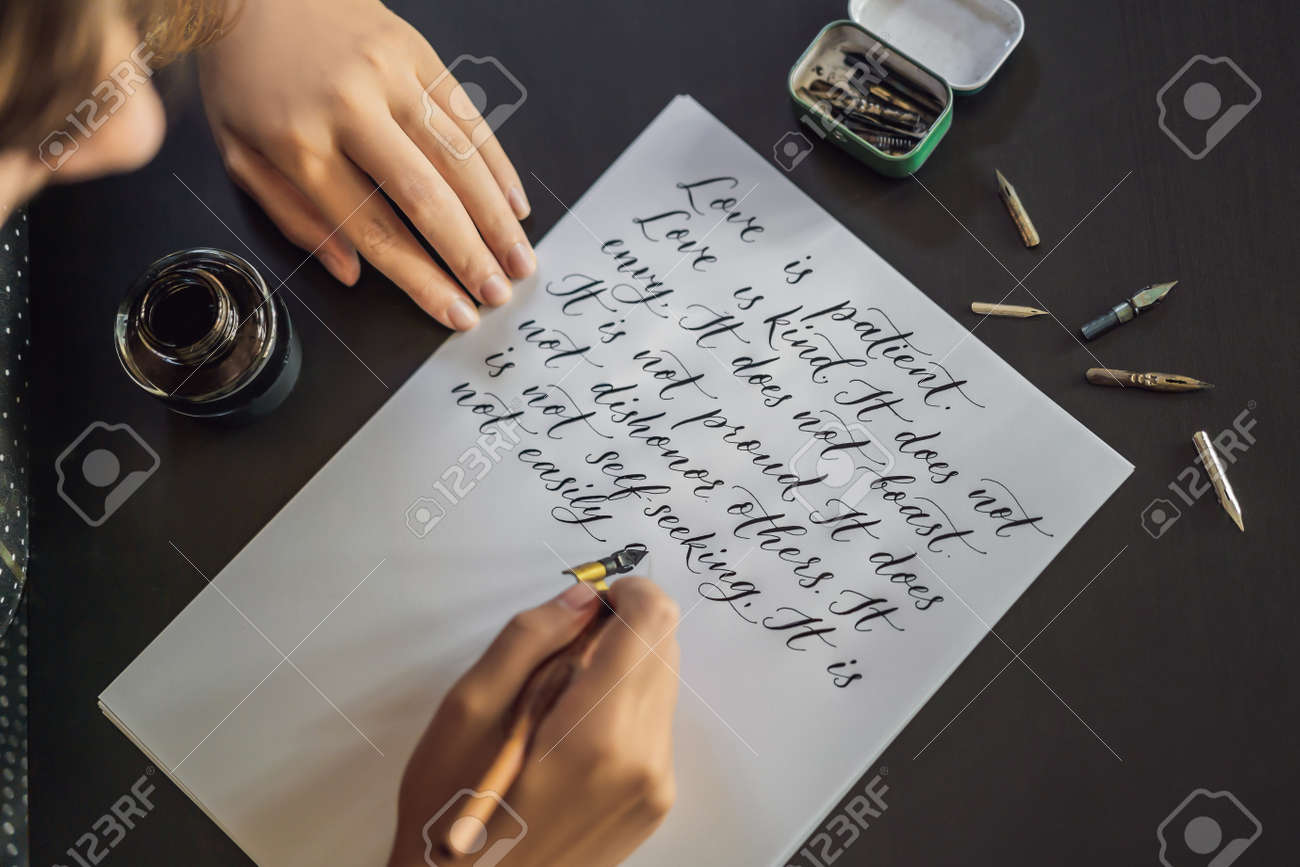 Love is patient.
Love is kind. It does not
envy. It does not boast.
It is not proud. It does
not dishonor others. It
is not self-seeking. It is
not easily
123RF
123RF
123RF
123RF
123RF
123RF
123RF